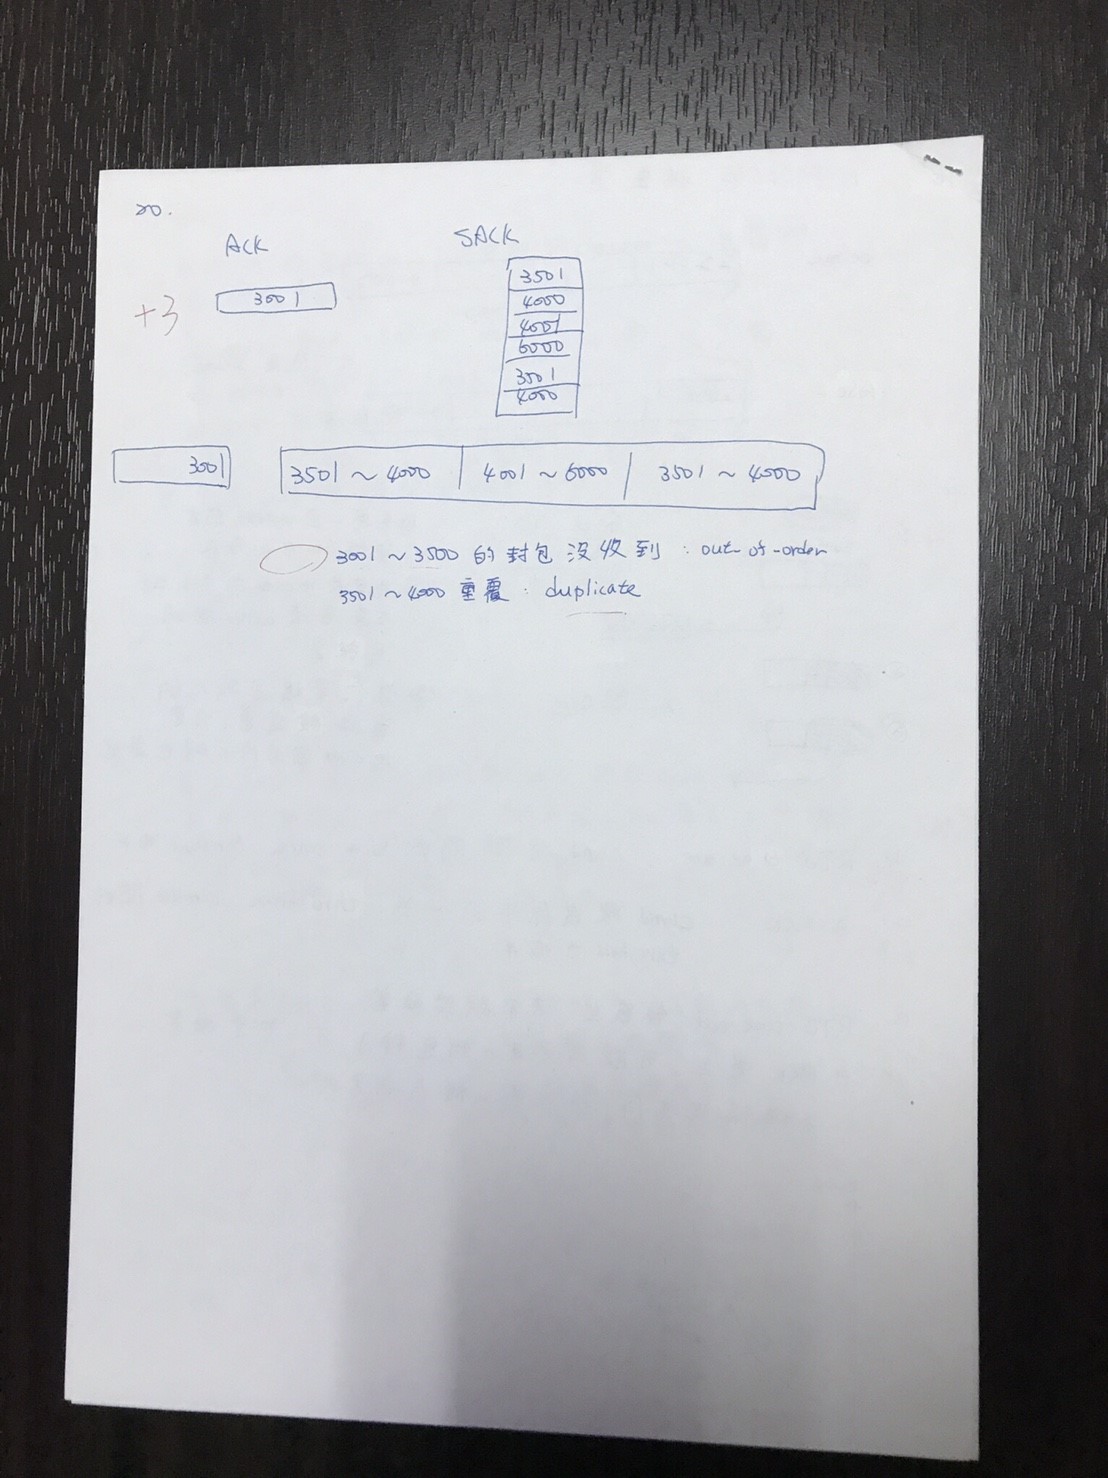 20.
ACK
SACK
+3
3001
3501
4000
4001
6000
3501
4000
3001
3501 ~ 4000
4001 ~ 6000
3501 ~ 4000
3001 ~ 3500 的封包沒收到 : out-of-order
3501 ~ 4000 重覆 : duplicate